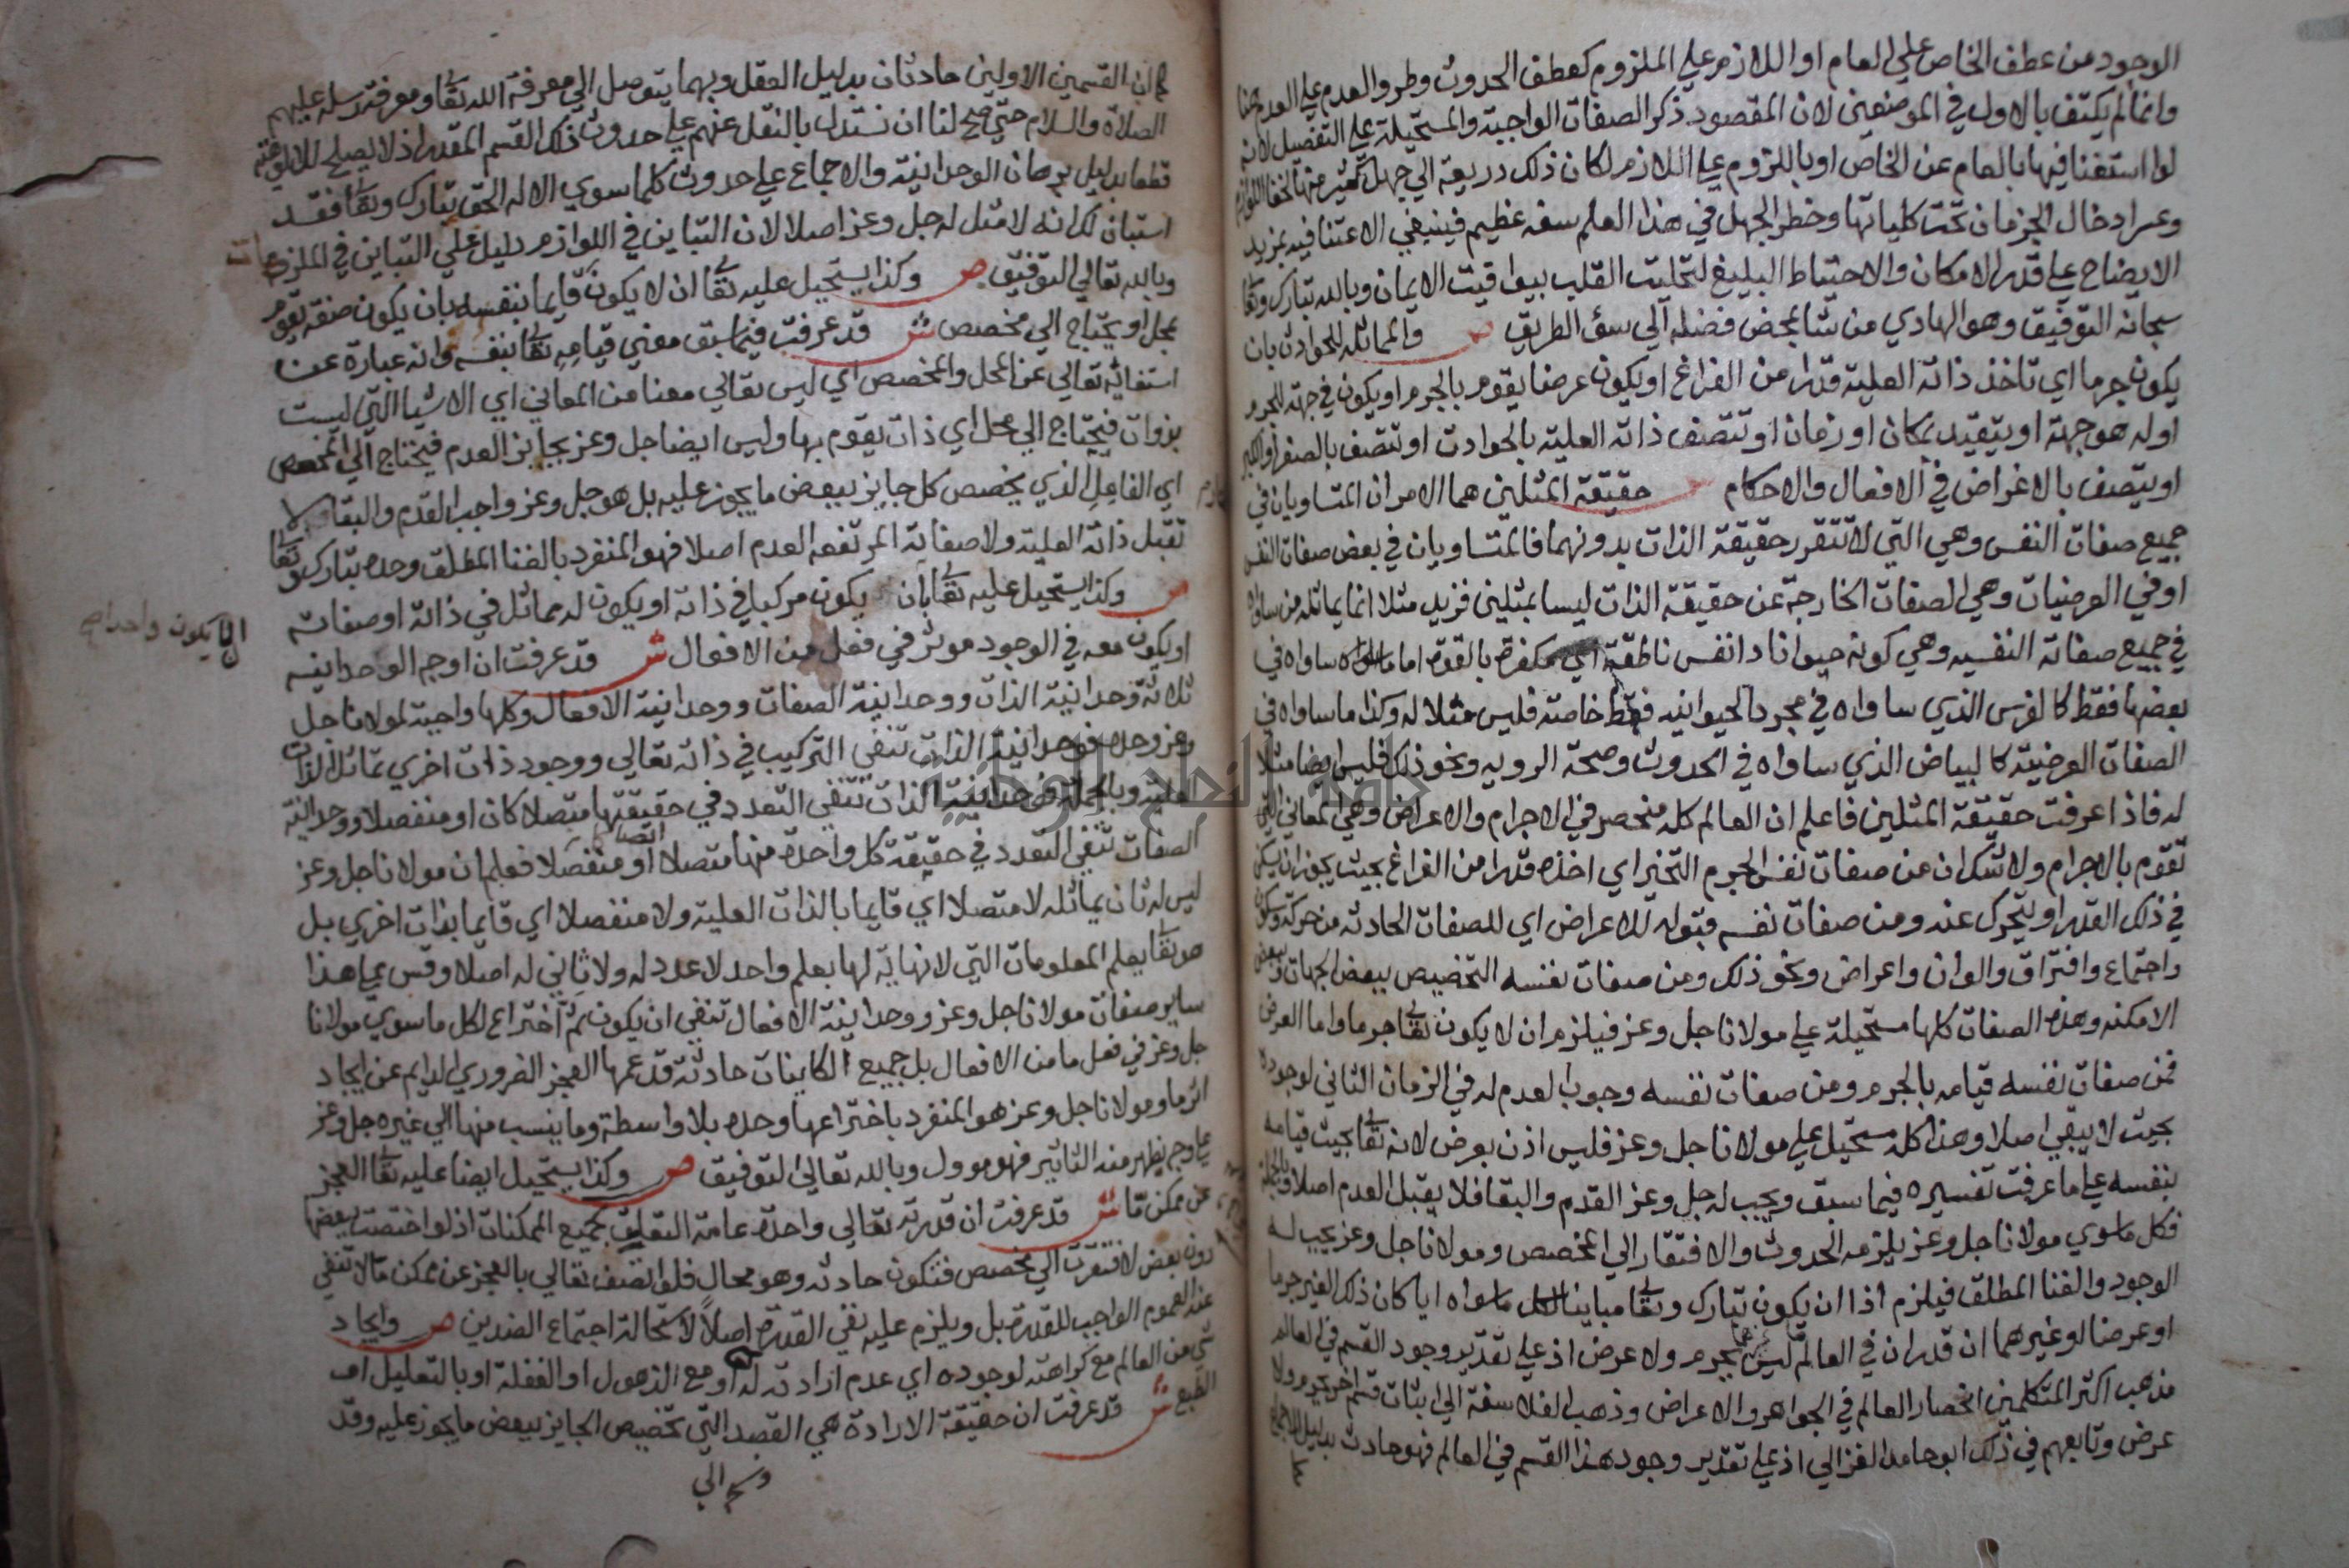 الوجود من عطف الخاص علي العام او اللازم علي الملزوم كعطف الحدوث وطرو العدم علي العدم هنا
وانما لم يكتف بالاول في الموضعين لان المقصود ذكر الصفات الواجبة والمستحيلة علي التفصيل لانه
لو استغنا فيها بالعام عن الخاص او بالملزوم علي اللازم لكان ذلك دريعة الي جهل كثير منها لخفا اللوازم
وعسر ادخال الجزءيات تحت كلياتها وخطر الجهل في هذا العلم عظيم فينبغي الاعتنا فيه بمزيد
الايضاح علي قدر الامكان والاحتياط البليغ لتحليت القلب بيواقيت الايمان وبالله تبارك وتعا
سبحانه التوفيق وهو الهادي من يشا بمحض فضله الي سوء الطريق ص والمماثله للحوادث بان
يكون جرما اي تاخذ ذاته العلية قدرا من الفراغ او يكون عرضا يقوم بالجرم او يكون في جهة للجرم
او له هو جهة او يتقيد بمكان او زمان او تتصف ذاته العلية بالحوادث او تتصف بالصغر او الكبر
او يتصف بالاغراض في الافعال والاحكام حقيقة المثلين هما الامران المتساويان في
جميع صفات النفس وهي التي لا تتقرر حقيقة الذات بدونهما فالمتساويان في بعض صفات النفس
او في العرضيات وهي الصفات الخارجة عن حقيقة الذات ليسا بمثلين فزيد مثلا انما يماثله من ساواه
في جميع صفاته النفسيه وهي كونه حيوانا ذا نفس ناطقة اي مكفرة بالقوة اما ما ساواه في
بعضها فقط كالفرس الذي ساواه في مجرد الحيوانيه فقط خاصة فليس مثلا له وكذا ما ساواه في
الصفات العرضية كالبياض الذي ساواه في الحدوث وصحة الرويه ونحو ذلك فليس ايضا مثلا
له فاذا عرفت حقيقة المثلين فاعلم ان العالم كله منحصر في الاجرام والاعراض وهي المعاني التي
تقوم بالاجرام ولا شك ان من صفات نفس الجرم التحيز اي اخذه قدرا من الفراغ بحيث يجوز ان يسكن
في ذلك القدر او يتحرك عنه ومن صفات نفسه قبوله للاعراض اي للصفات الحادثه من حركة وسكون
واجتماع وافتراق والوان واعراض ونحو ذلك ومن صفات نفسه التخصيص ببعض الجهات وبعض
الامكنه وهذه الصفات كلها مستحيلة علي مولانا جل وعز فيلزم ان لا يكون تعالي جرما واما العرض
فمن صفات نفسه قيامه بالجرم ومن صفات نفسه وجوب العدم له في الزمان الثاني لوجوده
بحيث لا يبقي اصلا وهذا كله مستحيل علي مولانا جل وعز فليس اذن بعرض لانه تعالي يجب قيامه
بنفسه علي ما عرفت تفسيره فيما سبق ويجب له جل وعز القدم والبقا فلا يقبل العدم اصلا وبالجملة
فكل ما سوي مولانا جل وعز يلزمه الحدوث والافتقار الي المخصص ومولانا جل وعز يجب له
الوجود والغنا المطلق فيلزم اذا ان يكون تبارك وتعالي مباينا لكل ما سواه ايا كان ذلك الغير جرما
او عرضا او غيرهما ان قدر ان في العالم ما ليس بجرم ولا عرض اذ علي تقدير وجود القسم في العالم
مذهب اكثر المتكلمين انحصار العالم في الجواهر والاعراض وذهب الفلاسفة الي اثبات قسم اخر بجرم ولا
عرض وتابعهم في ذلك ابو حامد الغزالي اذ علي تقدير وجود هذا القسم في العالم فهو حادث بدليل الاجماع
علي
كما ان القسمين الاولين حادثان بدليل العقل وبهما يتوصل الي معرفة الله تعالي ومعرفة رسله عليهم
الصلاة والسلام حتي صح لنا ان نستدل بالنقل عنهم علي حدوث ذلك القسم المقدر اذ لا يصلح للالوهية
قطعا بدليل برهان الوحدانية والاجماع علي حدوث كلما سوي الاله الحق تبارك وتعا فقد
استبان لك انه لا مثل له جل وعز اصلا لان التباين في اللوازم دليل علي التباين في الملزومات
وبالله تعالي التوفيق ص وكذا يستحيل عليه تعا ان لا يكون قايما بنفسه بان يكون صفة تقوم
بمحل او يحتاج الي مخصص ش قد عرفت فيما سبق معني قيامه تعا بنفسه وانه عبارة عن
استغنائه تعالي عن المحل والمخصص اي ليس تعالي معنا من المعاني اي الاشيا التي ليست
بذوات فيحتاج الي محل اي ذات يقوم بها وليس ايضا جل وعز بجايز العدم فيحتاج الي المخصص
اي الفاعل الذي يخصص كل جايز ببعض ما يجوز عليه بل هو جل وعز واجب القدم والبقا لا
تقبل ذاته العلية ولا صفاته المرتفعه العدم اصلا فهو المنفرد بالغنا المطلق وحده تبارك وتعا
ص وكذا يستحيل عليه تعا بان يكون مركبا في ذاته او يكون له مماثل في ذاته او صفاته
ان لا يكون واحدا
او يكون معه في الوجود موثر في فعل من الافعال ش قد عرفت ان اوجه الوحدانيه
ثلاثة وحدانية الذات ووحدانية الصفات ووحدانية الافعال وكلها واجبة لمولانا جل
وعز وحده فوحدانية الذات تنفي التركيب في ذاته تعالي ووجود ذات اخري تماثل الذات
العلية وبالجملة فوحدانية الذات تنفي التعدد في حقيقتها متصلا كان او منفصلا ووحدانية
الصفات تنفي التعدد في حقيقة كل واحدة منها متصلا ايضا او منفصلا فعلم ان مولانا جل وعز
ليس له ثان يماثله لا متصلا اي قايما بالذات العلية ولا منفصلا اي قايما بذات اخري بل
هو تعا يعلم المعلومات التي لا نهاية لها بعلم واحد لا عدد له ولا ثاني له اصلا وقس علي هذا
ساير صفات مولانا جل وعز ووحدانية الافعال تنفي ان يكون ثم اختراع لكل ما سوي مولانا
جل وعز في فعل ما من الافعال بل جميع الكاينات حادثة قد عمها العجز الضروري الدايم عن ايجاد
اثر ما ومولانا جل وعز هو المنفرد باختراعها وحده بلا واسطة وما ينسب منها الي غيره جل وعز
علي وجه يظهر منه التاثير فهو موول وبالله تعالي التوفيق ص وكذا يستحيل ايضا عليه تعا العجز
عن ممكن ما ش قد عرفت ان قدرته تعالي واحدة عامة التعلق بجميع الممكنات اذ لو اختصت ببعضها
دون بعض لافتقرت الي مخصص فتكون حادثه وهو محال فلو اتصف تعالي بالعجز عن ممكن ما لانتفي
عند العموم الواجب للقدرة بل ويلزم عليه نفي القدرة اصلا لاستحالة اجتماع الضدين ص وايجاد
شي من العالم مع كراهته لوجوده اي عدم ارادته له او مع الذهول او الغفلة او بالتعليل او
الطبع ش قد عرفت ان حقيقة الارادة هي القصد التي تخصيص الجايز ببعض ما يجوز عليه وقد
جامعة النجاح الوطنية